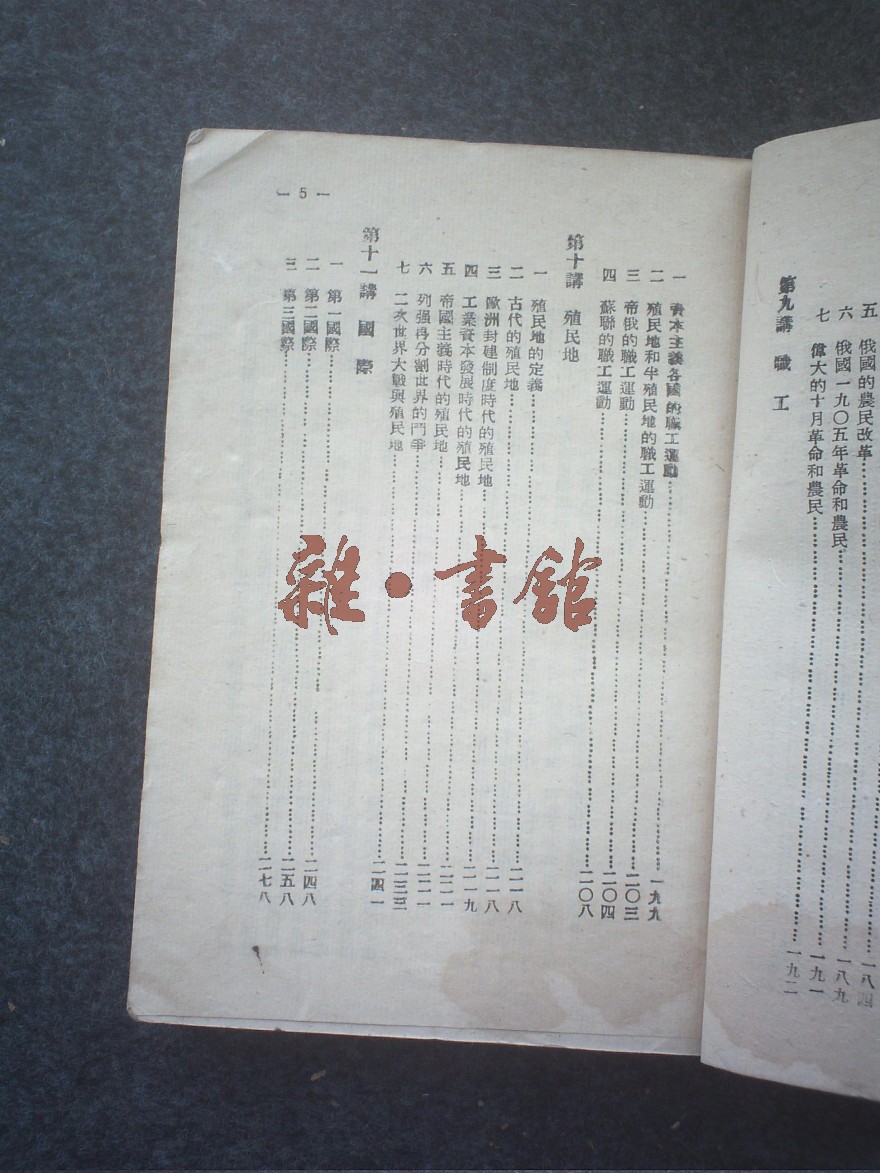 五　俄國的農民改革……一八四
六　俄國一九〇五年革命和農民……一八九
七　偉大的十月革命和農民……一九一
第九講　職工……一九二
— 5 —
一　資本主義各國的職工運動……一九九
二　殖民地和半殖民地的職工運動……二〇三
三　帝俄的職工運動……二〇四
四　蘇聯的職工運動……二〇八
第十講　殖民地
一　殖民地的定義……二一八
二　古代的殖民地……二一八
三　歐洲封建制度時代的殖民地……二一九
四　工業資本發展時代的殖民地……二二一
五　帝國主義時代的殖民地……二二一
六　列强再分割世界的鬥爭……二三三
七　二次世界大戰與殖民地……二四一
第十一講　國際
一　第一國際……二四八
二　第二國際……二五八
三　第三國際……二七八
雜·書館